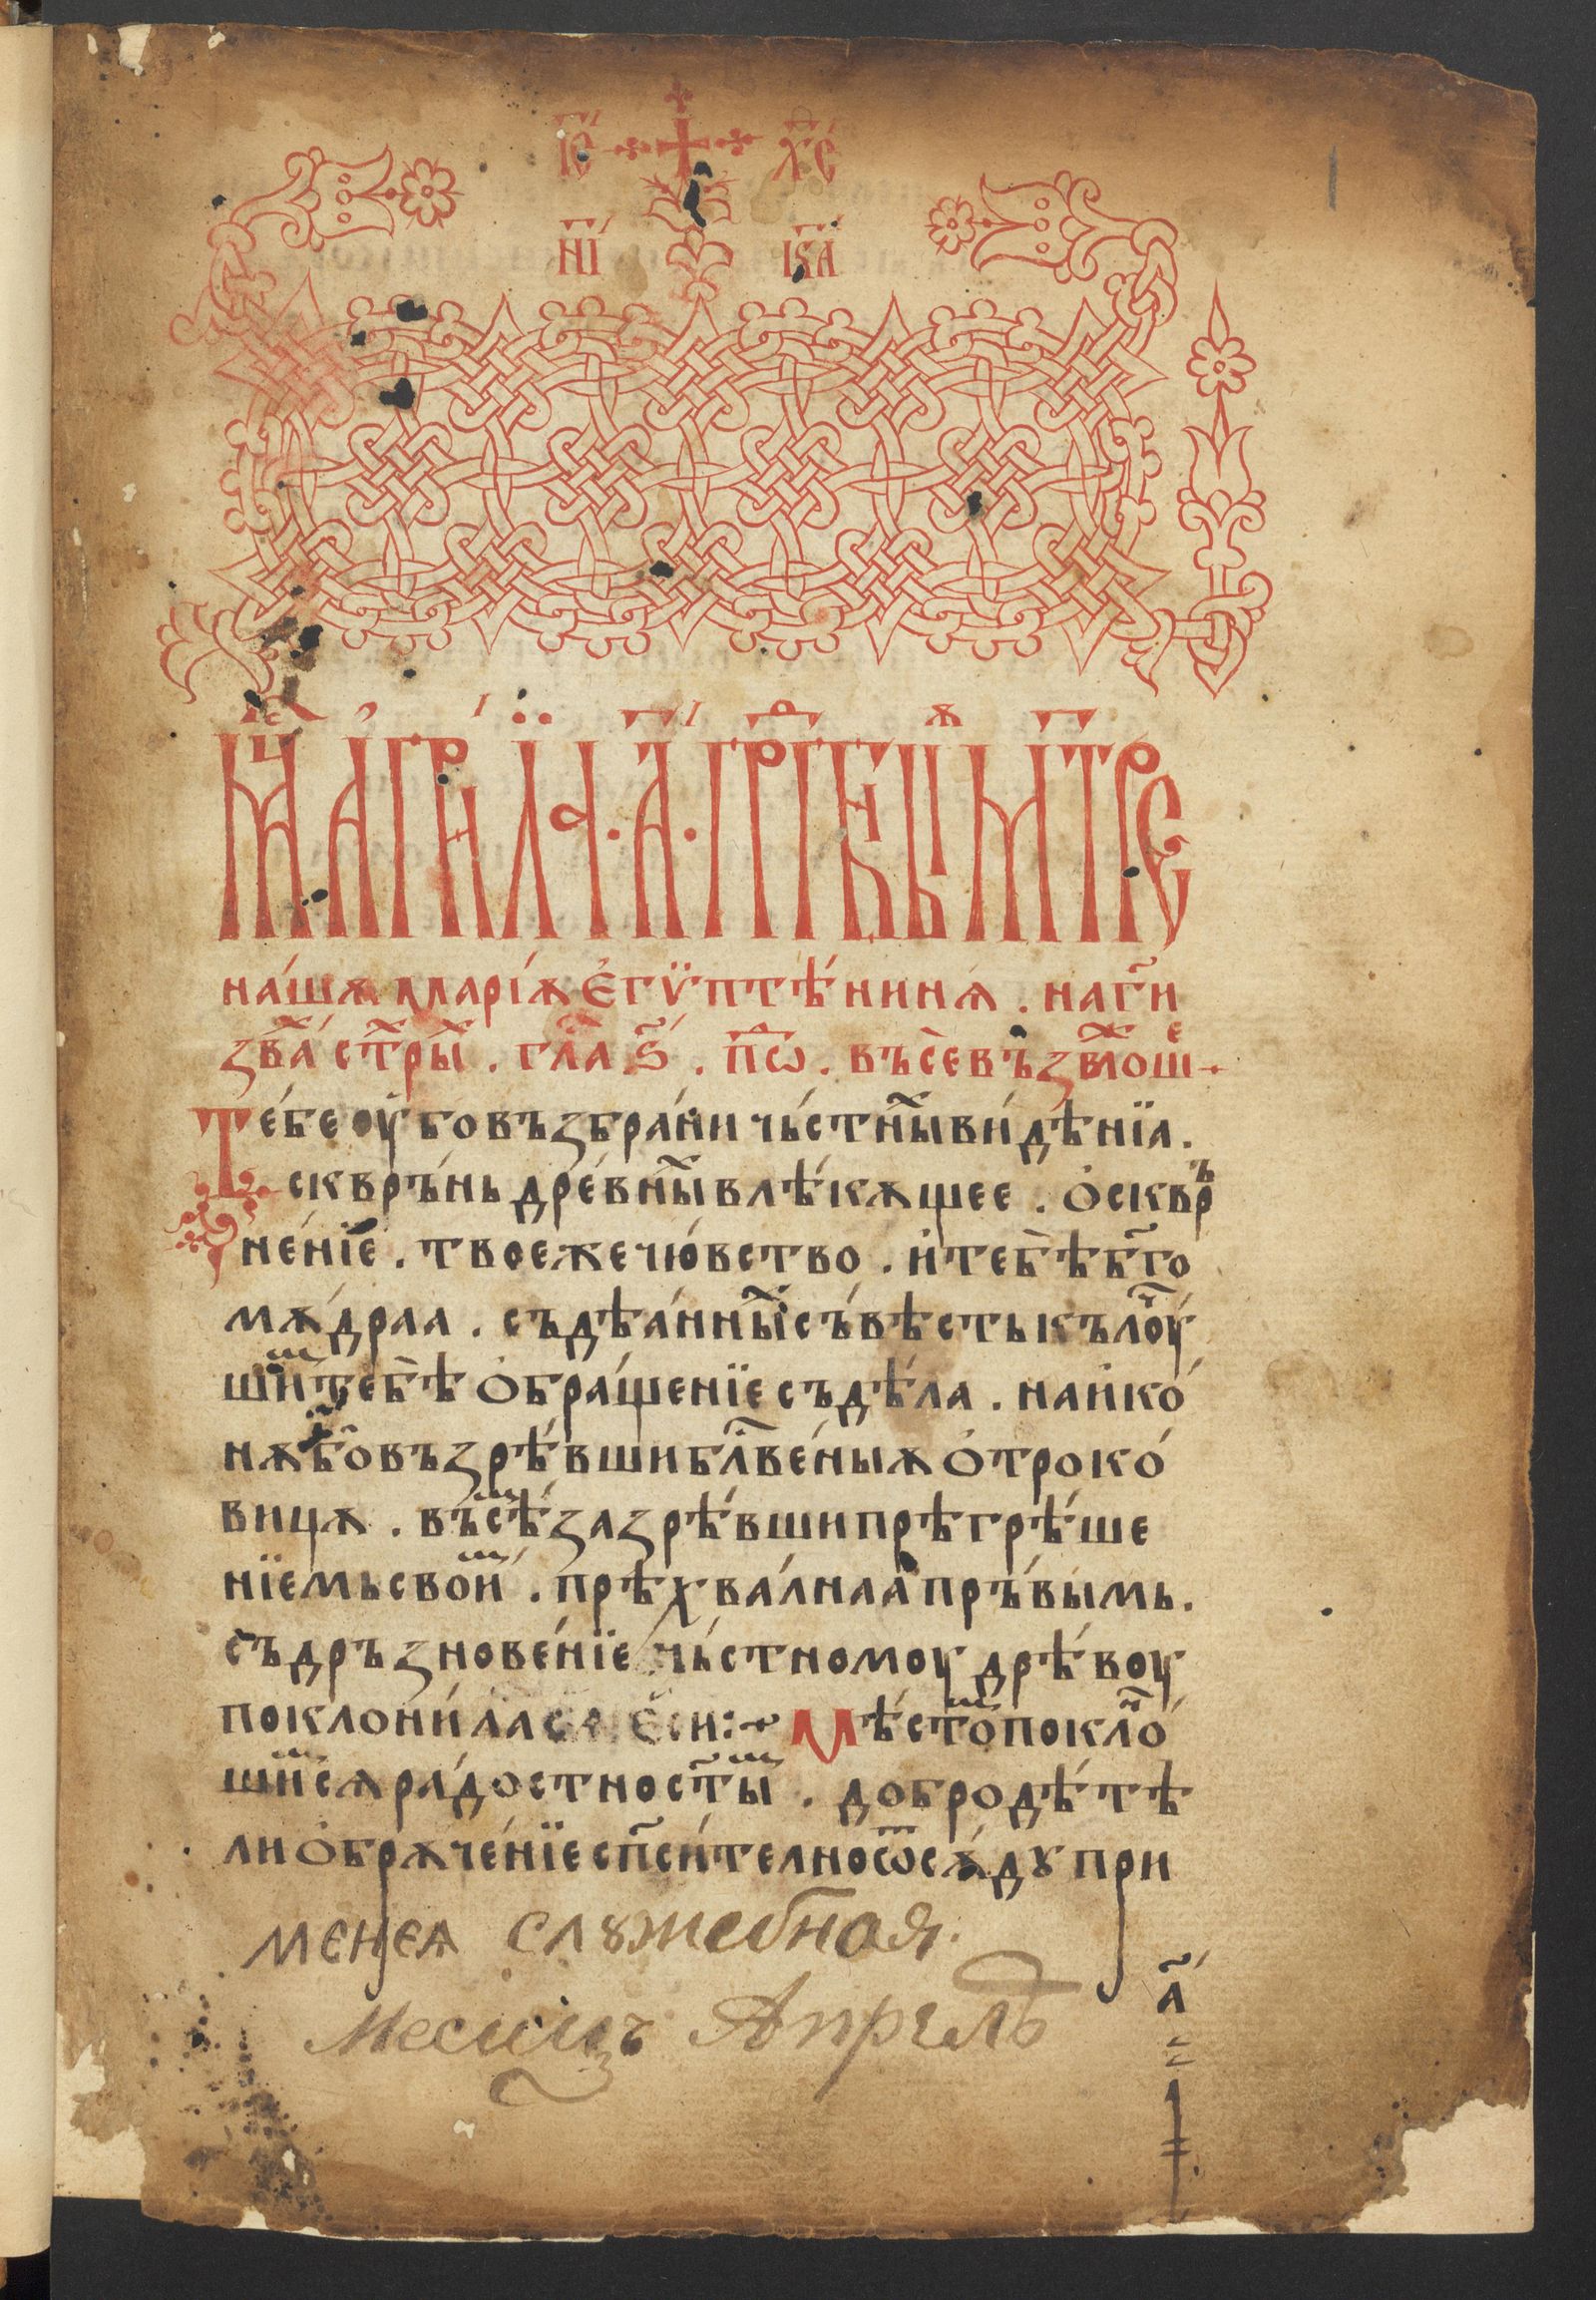 І҃С Х҃С
НИ КА
М҃ЦА АПРИЛ . А҃ . ПРПБНЫѦ МТРЕ
на́шѫ марі́ѫ є҆гѷптѣ́нинѧ . на г҃и
зва́ ст҃ры . гла ѕ҃ . по҃ѡ . въсе въз̾лош
Те́бе оу҆бо възбра́ни чь́стны ви́дѣнїа .
скврь́нь дре́вны влѣ́кѫщее . ѻ҆сквр
не́нїе . твоеже чю́вство . и҆ тебѣ б҃го
мѫ́драа . съдѣа́нны съ́вѣсть къ лоу́
ши тебѣ ѻ҆бра́щенїе съдѣ́ла . на и҆ко́
нѫ бо възрѣ́вши бл҃ве́ныѫ ѻ҆троко́
вицѫ . въсѣ́ зазрѣ́вши прѣгрѣ́ше
нїемь свои . прѣхва́лнаа прь́вымь .
съдръзнове́нїе чь́стномоу дрѣ́воу
поклони́ласѧ е҆си :~ Мѣ́сто покло́
шисѧ ра́достно ст҃ы . добродѣ́тѣ
ли ѻ҆брѫче́нїе сп҃си́телно ѿсѫ́дꙋ при
менеѧ слꙋжебная .
Месицъ Апрель
а҃